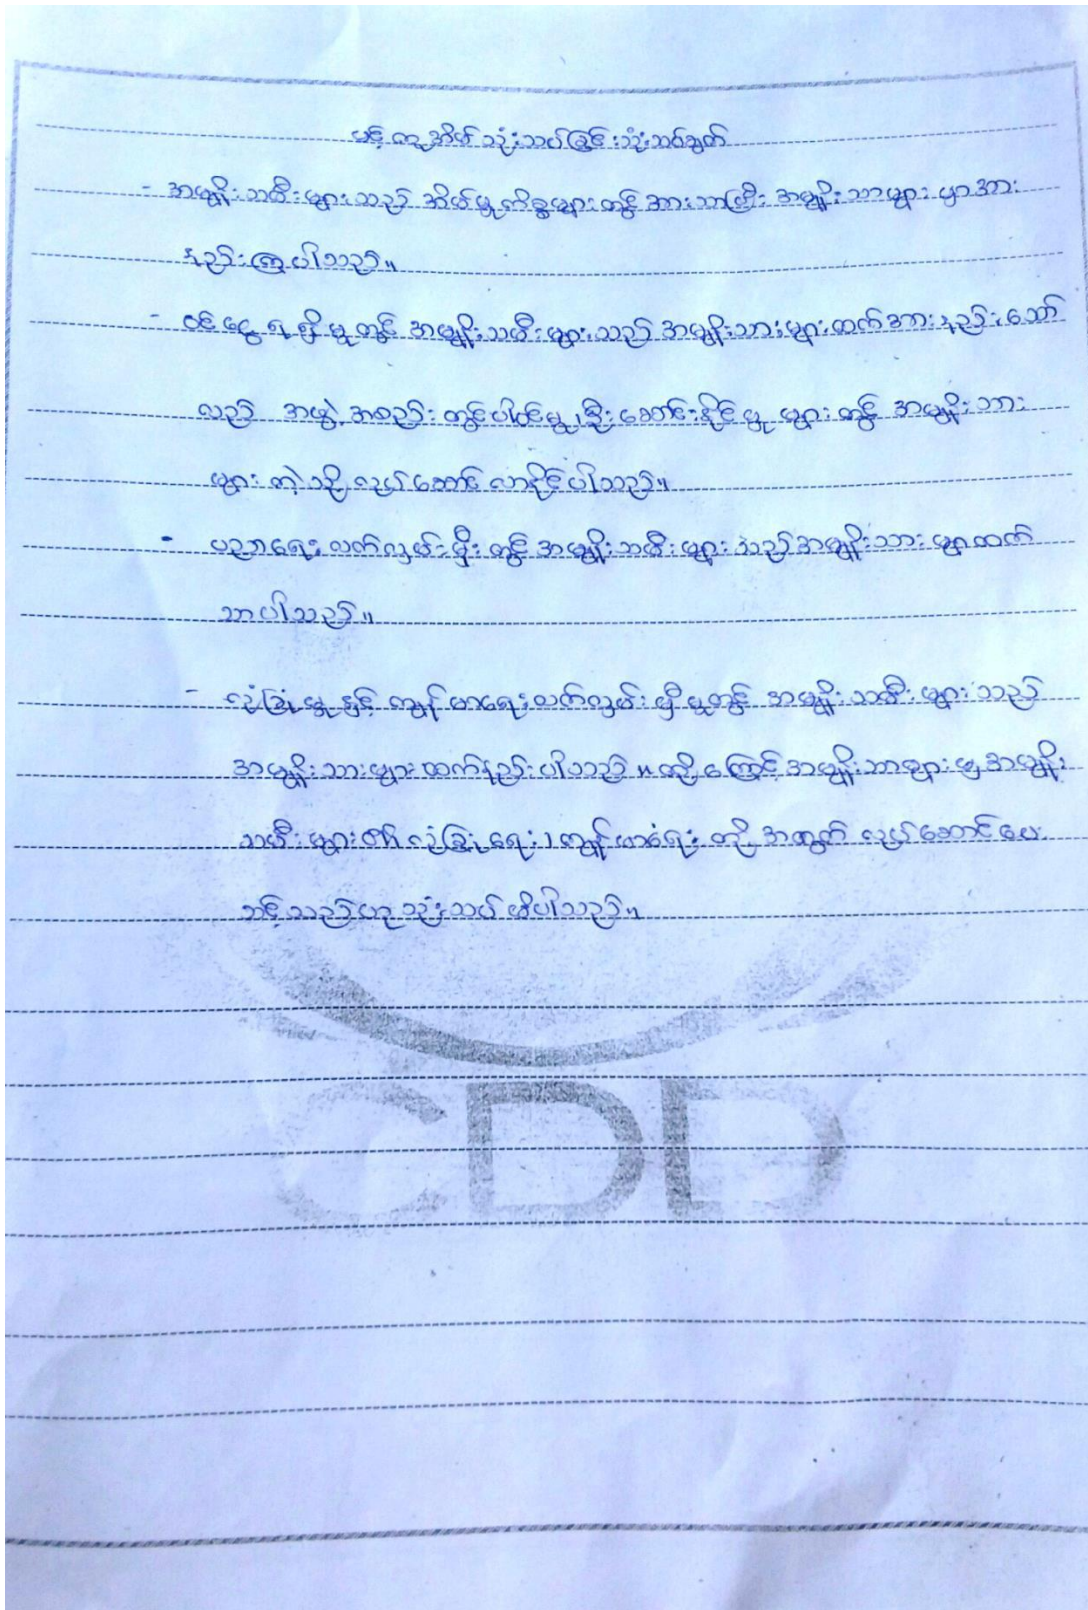 ပင့်ကူအိမ်သုံးသပ်ခြင်းသုံးသပ်ချက်
- အမျိုးသမီးများသည် အိမ်မှုကိစ္စများတွင် အားသာပြီး အမျိုးသာများမှာအား
နည်းကြပါသည်။
- ဝင်ငွေရရှိမှုတွင် အမျိုးသမီးများသည် အမျိုးသားများထက်အားနည်းသော်
လည် အဖွဲ့အစည်းတွင်ပါဝင်မှု၊ဦးဆောင်နိုင်မှုများတွင် အမျိုးသား
များကဲ့သို့လုပ်ဆောင်လာနိုင်ပါသည်။
- ပညာရေးလက်လှမ်းမှီးတွင် အမျိုးသမီးများသည်အမျိုးသားမျာထက်
သာပါသည်။
- လုံခြုံမှုနှင့် ကျန်မာရေးလက်လှမ်းမှီမှုတွင် အမျိုးသမီးများသည်
အမျိုးသားများထက်နည်းပါသည်။ထို့ကြောင့်အမျိုးသာများမှအမျိုး
သမီးများ၏လုံခြုံရေး၊ကျန်မာရေးတို့အတွက်လုပ်ဆောင်ပေး
သင့်သည်ဟုသုံးသပ်မိပါသည်။
CDD